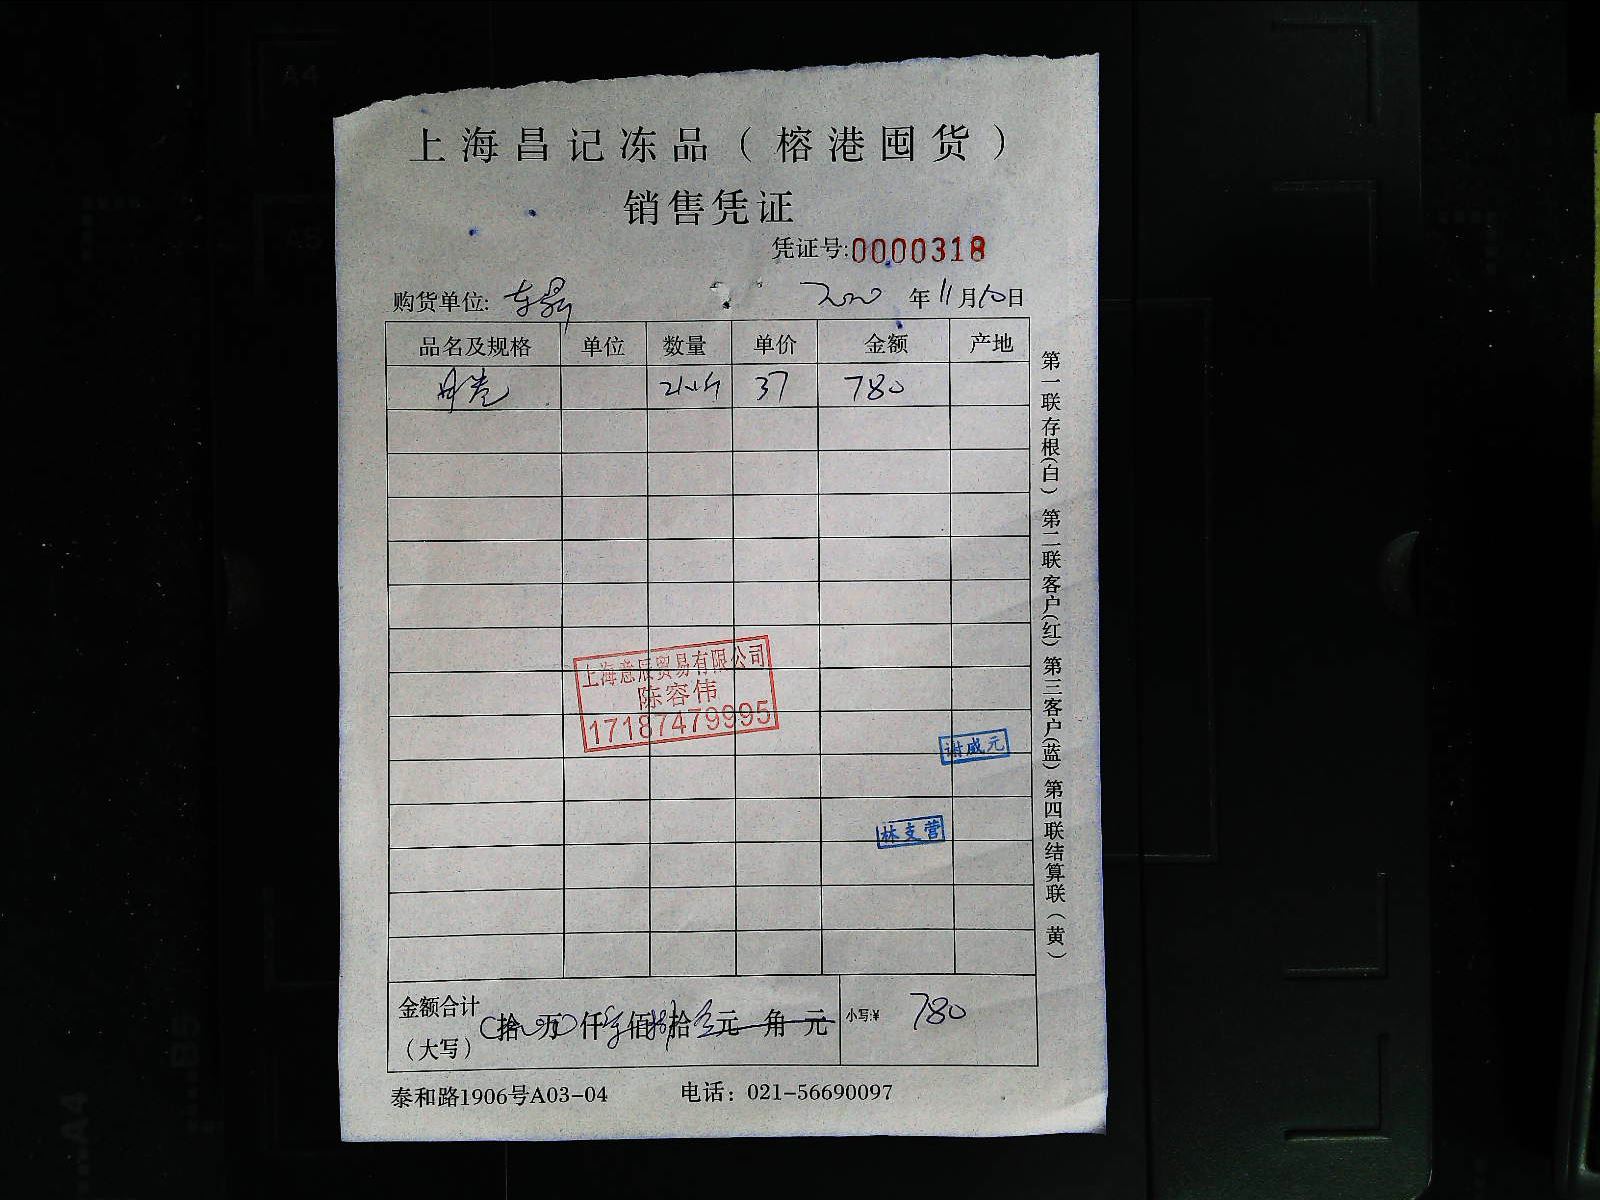 上海昌记冻品（榕港囤货）
销售凭证
凭证号:0000318
购货单位: 2020年11月10日
品名及规格 单位 数量 单价 金额 产地
37 780
上海意辰贸易有限公司
陈容伟
17187479995
谢威元
林支营
金额合计（大写） 拾 万 仟 佰 拾 元 角 元 小写:¥ 780
泰和路1906号A03-04 电话：021-56690097
第一联存根(白) 第二联客户(红) 第三客户(蓝) 第四联结算联(黄)